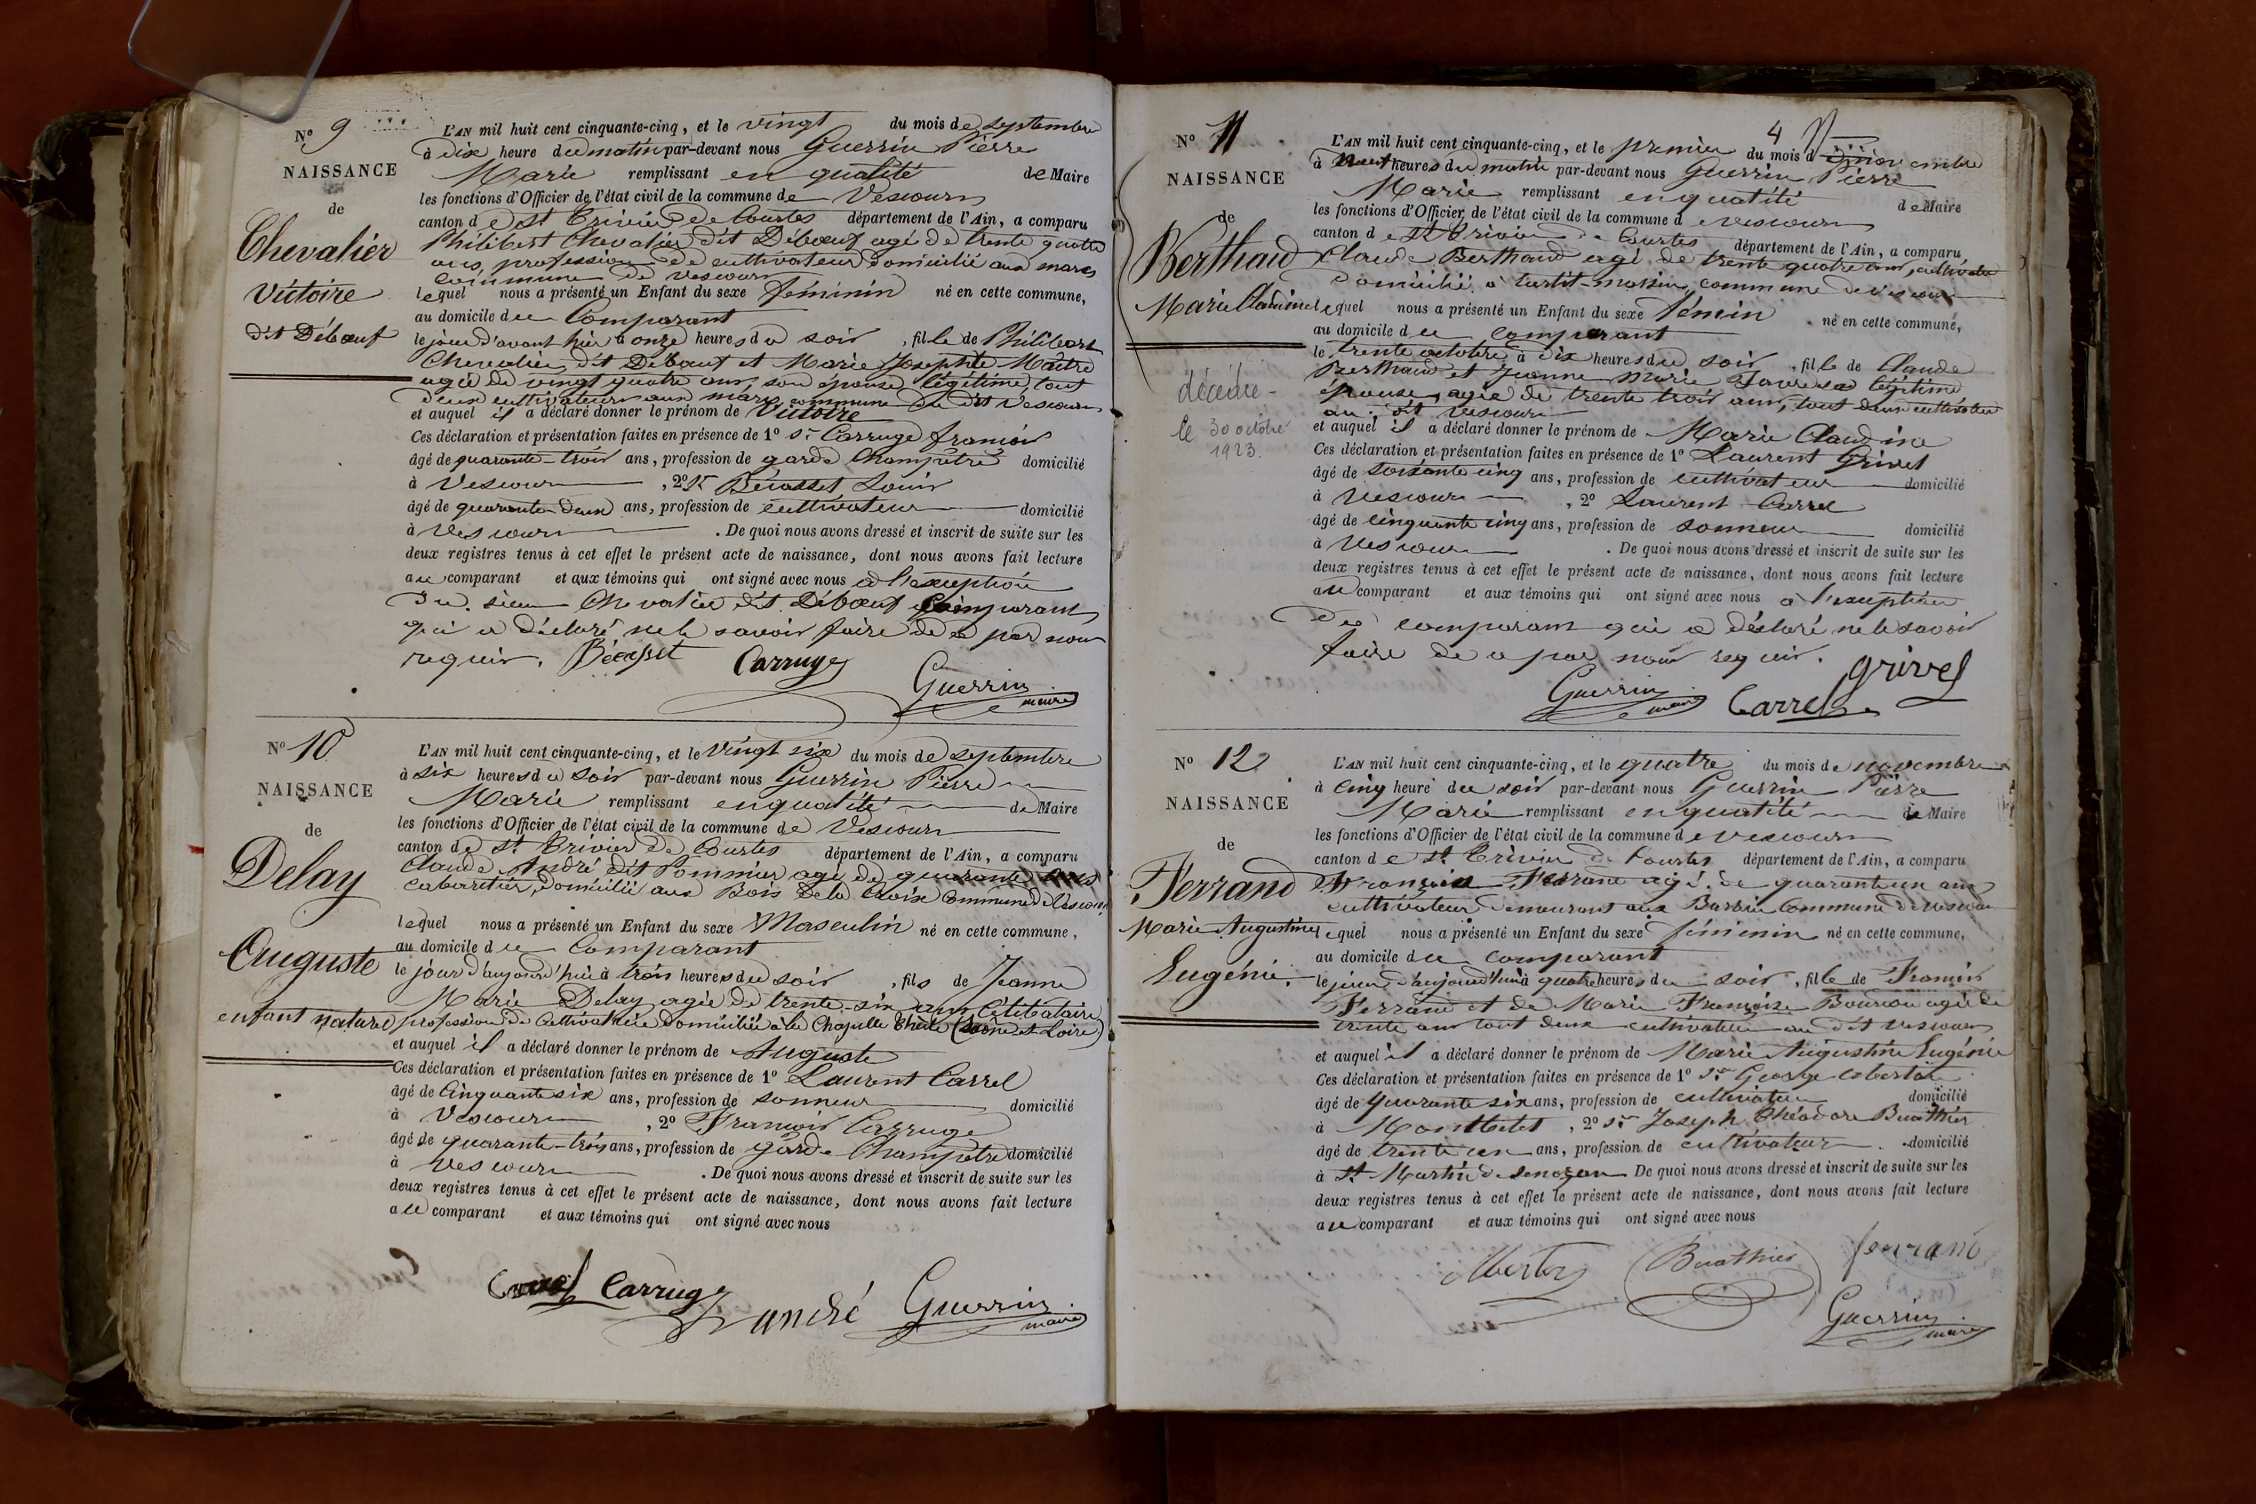 N° 9
NAISSANCE
de
Chevalier
Victoire
dit Débœuf
L'AN mil huit cent cinquante-cinq, et le vingt du mois de septembre
à dix heure du matin par-devant nous Guerrin Pierre
Marie remplissant en qualité de Maire
les fonctions d'Officier de l'état civil de la commune de Vescours
canton de St Trivier de Courtes département de l'Ain, a comparu
Philibert Chevalier dit Débœuf agé de trente quatre
ans, profession de cultivateur domicilié aux mares
commune de Vescours
lequel nous a présenté un Enfant du sexe féminin né en cette commune,
au domicile du Comparant
le jour d'avant hier à onze heures du soir, fille de Philibert
Chevalier dit Débœuf et Marie Josephte Maître
agée de vingt quatre ans, son épouse légitime, tout
deux cultivateurs aux mares commune du dit Vescours
et auquel il a déclaré donner le prénom de Victoire
Ces déclaration et présentation faites en présence de 1° Sr Carruge françois
âgé de quarante-trois ans, profession de garde Champêtre domicilié
à Vescours, 2° Sr Bécasset Louis
âgé de quarante deux ans, profession de cultivateur domicilié
à Vescours. De quoi nous avons dressé et inscrit de suite sur les
deux registres tenus à cet effet le présent acte de naissance, dont nous avons fait lecture
au comparant et aux témoins qui ont signé avec nous à l'exception
du sieur Chevalier dit Débœuf Comparant
qui a déclaré ne le savoir faire de ce par nous
requis. Bécasset Carruge Guerrin maire
N° 10
NAISSANCE
de
Delay
Auguste
enfant naturel
L'AN mil huit cent cinquante-cinq, et le vingt six du mois de septembre
à six heures du soir par-devant nous Guerrin Pierre
Marie remplissant en qualité de Maire
les fonctions d'Officier de l'état civil de la commune de Vescours
canton de St Trivier de Courtes département de l'Ain, a comparu
Claude André dit Pommier agé de quarante ans
cabaretier, domicilié aux Bois de la Croix Commune de Vescours
lequel nous a présenté un Enfant du sexe Masculin né en cette commune,
au domicile du Comparant
le jour d'aujourd'hui à trois heures du soir, fils de Jeanne
Marie Delay agée de trente-six ans Célibataire
profession de Cultivatrice domiciliée à la Chapelle Thècle (Saône et Loire)
et auquel il a déclaré donner le prénom de Auguste
Ces déclaration et présentation faites en présence de 1° Laurent Carrel
âgé de Cinquante six ans, profession de sonneur domicilié
à Vescours, 2° François Carruge
âgé de quarante-trois ans, profession de garde Champêtre domicilié
à Vescours. De quoi nous avons dressé et inscrit de suite sur les
deux registres tenus à cet effet le présent acte de naissance, dont nous avons fait lecture
au comparant et aux témoins qui ont signé avec nous
Carrel Carruge andré Guerrin maire
4
N° 11
NAISSANCE
de
Berthaud
Marie Claudine
décédée
le 30 octobre
1923.
L'AN mil huit cent cinquante-cinq, et le premier du mois de novembre
à neuf heures du matin par-devant nous Guerrin Pierre
Marie remplissant en qualité de Maire
les fonctions d'Officier de l'état civil de la commune de Vescours
canton de St Trivier de Courtes département de l'Ain, a comparu
Claude Berthaud agé de trente quatre ans, cultivateur
domicilié à commune de Vescours
lequel nous a présenté un Enfant du sexe Féminin né en cette commune,
au domicile du comparant
le trente octobre à dix heures du soir, fille de Claude
Berthaud et Jeanne Marie sa légitime
épouse, agée de trente trois ans, tout deux cultivateurs
au dit Vescours
et auquel il a déclaré donner le prénom de Marie Claudine
Ces déclaration et présentation faites en présence de 1° Laurent Grivel
âgé de soixante cinq ans, profession de cultivateur domicilié
à Vescours, 2° Laurent Carrel
âgé de cinquante cinq ans, profession de sonneur domicilié
à Vescours. De quoi nous avons dressé et inscrit de suite sur les
deux registres tenus à cet effet le présent acte de naissance, dont nous avons fait lecture
au comparant et aux témoins qui ont signé avec nous à l'exception
du comparant qui a déclaré ne le savoir
faire de ce par nous requis. Grivel
Guerrin maire Carrel
N° 12
NAISSANCE
de
Ferrand
Marie Augustine
Eugénie.
L'AN mil huit cent cinquante-cinq, et le quatre du mois de novembre
à cinq heure du soir par-devant nous Guerrin Pierre
Marie remplissant en qualité de Maire
les fonctions d'Officier de l'état civil de la commune de Vescours
canton de St Trivier de Courtes département de l'Ain, a comparu
François Ferrand agé de quarante un ans
cultivateur demeurant aux Commune de Vescours
lequel nous a présenté un Enfant du sexe féminin né en cette commune,
au domicile du comparant
le jour d'aujourd'hui à quatre heures du soir, fille de François
Ferrand et de Marie Françoise agée de
trente ans tout deux cultivateurs au dit Vescours
et auquel il a déclaré donner le prénom de Marie Augustine Eugénie
Ces déclaration et présentation faites en présence de 1° Sr George
âgé de quarante six ans, profession de cultivateur domicilié
à Montbelet, 2° Sr Joseph Théodore Buathier
âgé de trente un ans, profession de cultivateur domicilié
à St Martin de Senozan De quoi nous avons dressé et inscrit de suite sur les
deux registres tenus à cet effet le présent acte de naissance, dont nous avons fait lecture
au comparant et aux témoins qui ont signé avec nous
Buathier ferrand
Guerrin maire